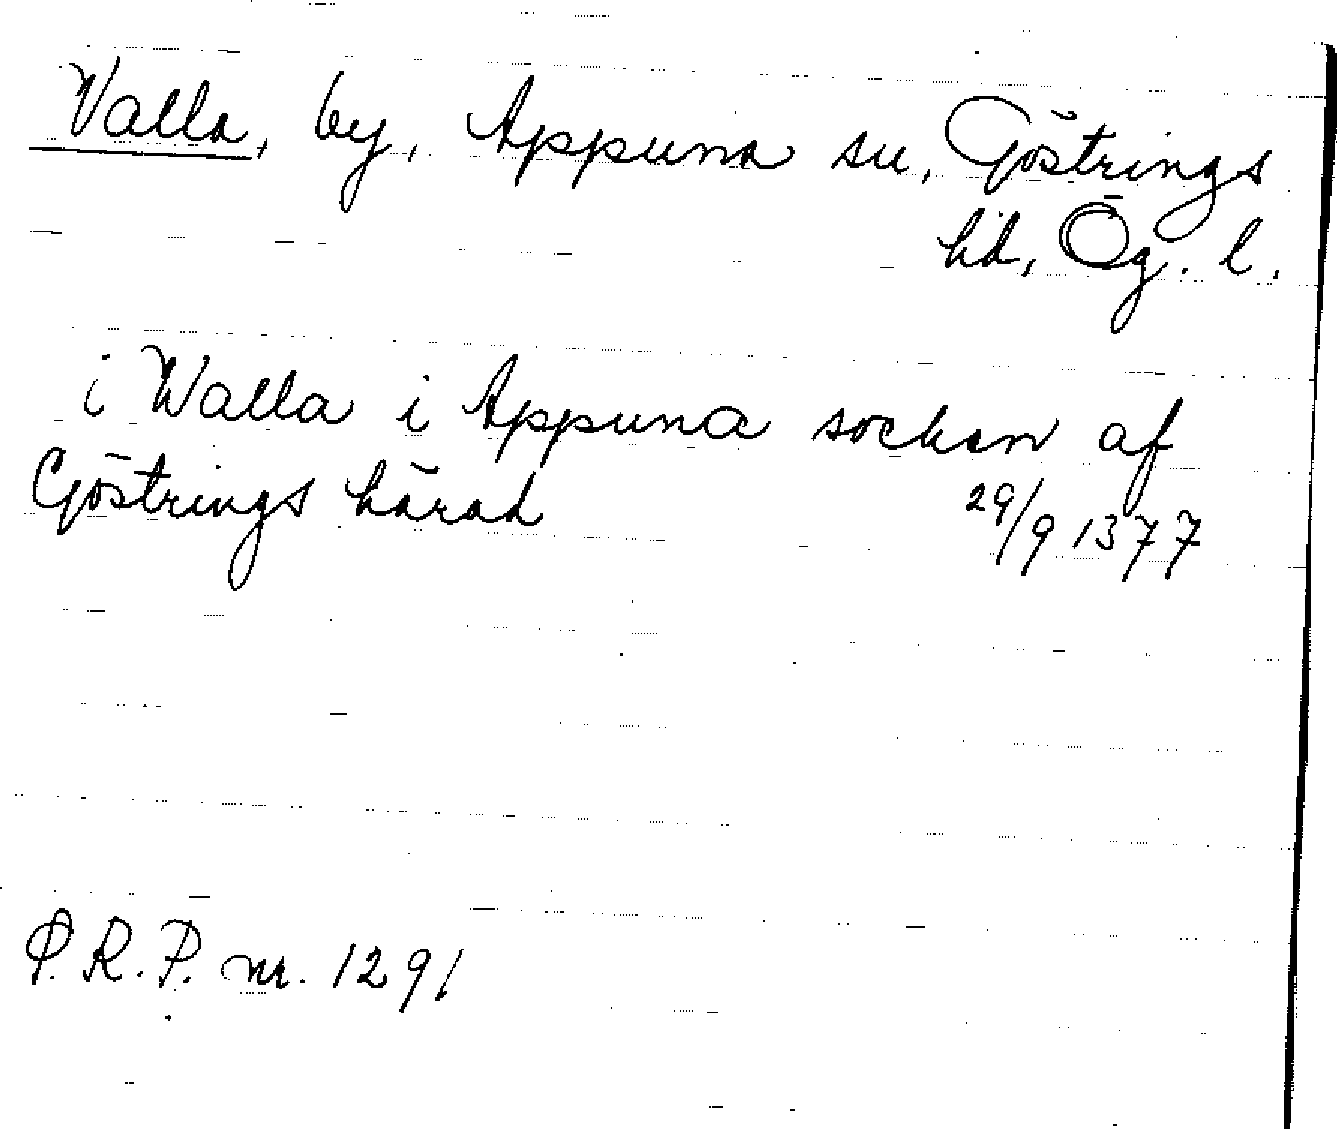 Valla, by, Appuna sn, Göstrings
hd, Ög. l.
i Walla i Appuna sockan af
Göstrings härad 29/9 1377
P.R.P. nr. 1291